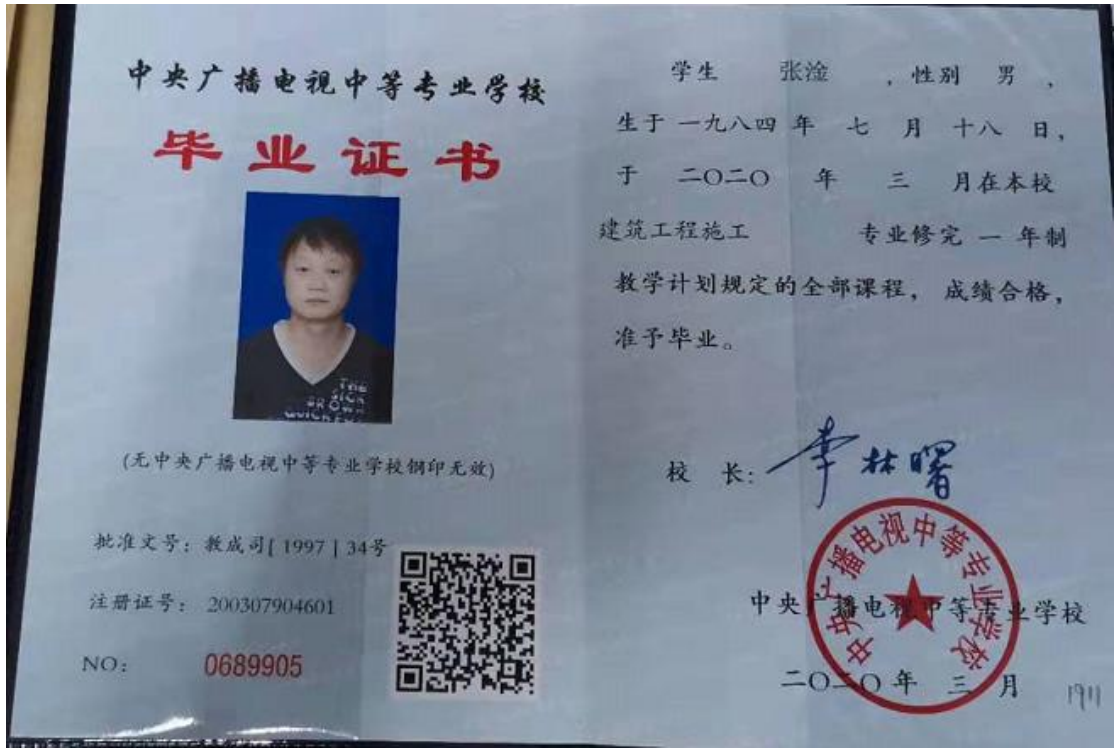 中央广播电视中等专业学校
毕业证书
THE
SICK
BROWN
(无中央广播电视中等专业学校钢印无效)
批准文号：教成司[ 1997 ] 34号
注册证号： 200307904601
NO： 0689905
学生 张淦 ，性别 男 ，
生于 一九八四 年 七 月 十八 日，
于 二〇二〇 年 三 月在本校
建筑工程施工 专业修完 一 年制
教学计划规定的全部课程， 成绩合格，
准予毕业。
校 长： 李林曙
中央广播电视中等专业学校
中央广播电视中等专业学校
二〇二〇 年 三 月
1911